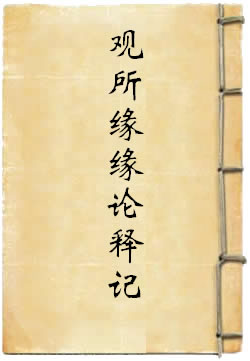 观所缘缘论释记